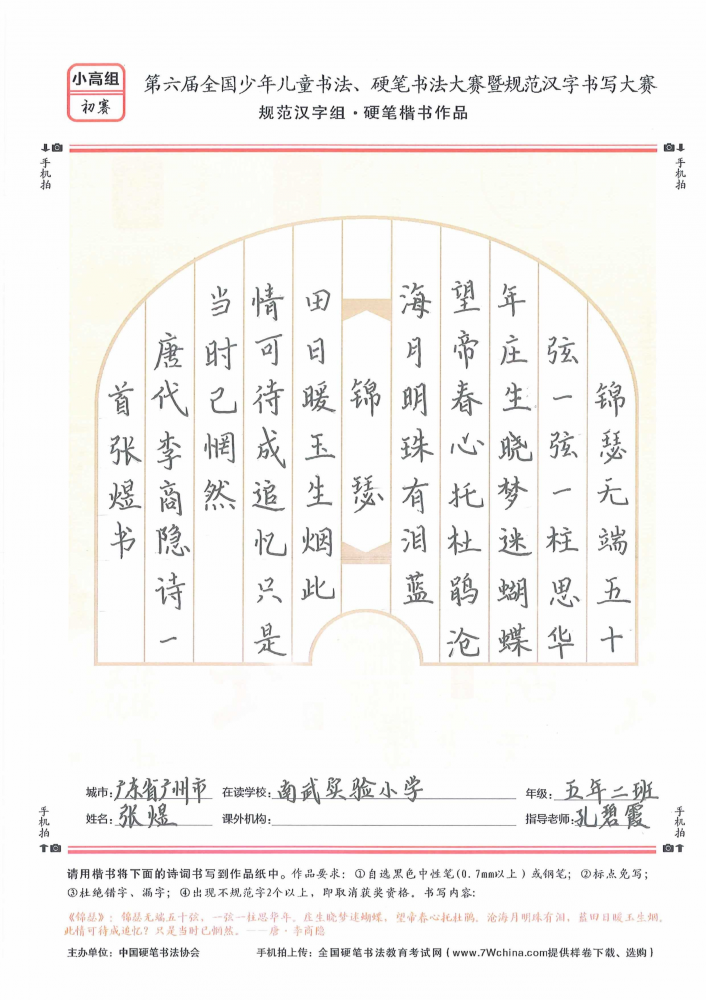 小高组
初赛
第六届全国少年儿童书法、硬笔书法大赛暨规范汉字书写大赛
规范汉字组·硬笔楷书作品
手机拍
手机拍
锦瑟无端五十
弦一弦一柱思华
年庄生晓梦迷蝴蝶
望帝春心托杜鹃沧
海月明珠有泪蓝
锦瑟
田日暖玉生烟此
情可待成追忆只是
当时已惘然
唐代李商隐诗一
首张煜书
手机拍
手机拍
城市:广东省广州市 在读学校:南武实验小学 年级:五年二班
姓名:张煜 课外机构: 指导老师:孔碧霞
请用楷书将下面的诗词书写到作品纸中。作品要求:①自选黑色中性笔(0.7mm以上)或钢笔;②标点免写;
③杜绝错字、漏字;④出现不规范字2个以上,即取消获奖资格。书写内容:
《锦瑟》:锦瑟无端五十弦,一弦一柱思华年。庄生晓梦迷蝴蝶,望帝春心托杜鹃。沧海月明珠有泪,蓝田日暖玉生烟。
此情可待成追忆?只是当时已惘然。——唐·李商隐
主办单位:中国硬笔书法协会 手机拍上传:全国硬笔书法教育考试网(www.7Wchina.com提供样卷下载、选购)